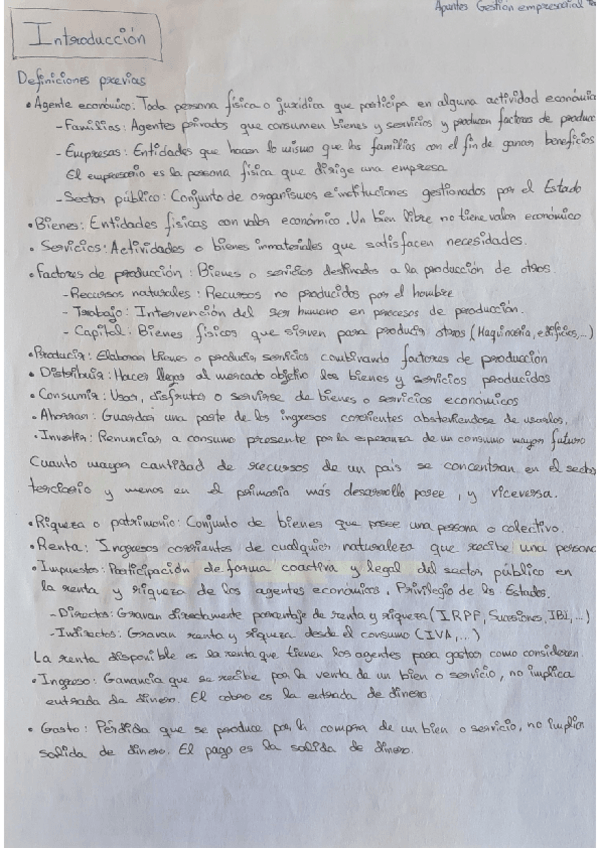 Apuntes Gestión empresarial
Introducción
Definiciones previas
• Agente económico: Toda persona física o jurídica que participa en alguna actividad económica
- Familias: Agentes privados que consumen bienes y servicios y producen factores de produc
- Empresas: Entidades que hacen lo mismo que las familias con el fin de ganar beneficios
El empresario es la persona física que dirige una empresa
- Sector público: Conjunto de organismos e instituciones gestionados por el Estado
• Bienes: Entidades físicas con valor económico. Un bien libre no tiene valor económico
• Servicios: Actividades o bienes inmateriales que satisfacen necesidades.
• Factores de producción: Bienes o servicios destinados a la producción de otros.
- Recursos naturales: Recursos no producidos por el hombre
- Trabajo: Intervención del ser humano en procesos de producción.
- Capital: Bienes físicos que sirven para producir otros (Maquinaria, edificios,...)
• Producir: Elaborar bienes o producir servicios combinando factores de producción
• Distribuir: Hacer llegar al mercado objetivo los bienes y servicios producidos
• Consumir: Usar, disfrutar o servirse de bienes o servicios económicos
• Ahorrar: Guardar una parte de los ingresos corrientes absteniendose de usarlos.
• Invertir: Renunciar a consumo presente por la esperanza de un consumo mayor futuro
Cuanto mayor cantidad de recursos de un país se concentran en el secto
terciario y menos en el primario más desarrollo posee, y viceversa.
• Riqueza o patrimonio: Conjunto de bienes que posee una persona o colectivo.
• Renta: Ingresos corrientes de cualquier naturaleza que recibe una persona
• Impuestos: Participación de forma coactiva y legal del sector público en
la renta y riqueza de los agentes económicos. Privilegio de los Estados.
- Directos: Gravan directamente porcentaje de renta y riqueza (IRPF, Sucesiones, IBI,...)
- Indirectos: Gravan renta y riqueza desde el consumo (IVA,...)
La renta disponible es la renta que tienen los agentes para gastar como consideren.
• Ingreso: Ganancia que se recibe por la venta de un bien o servicio, no implica
entrada de dinero. El cobro es la entrada de dinero.
• Gasto: Pérdida que se produce por la compra de un bien o servicio, no implica
salida de dinero. El pago es la salida de dinero.